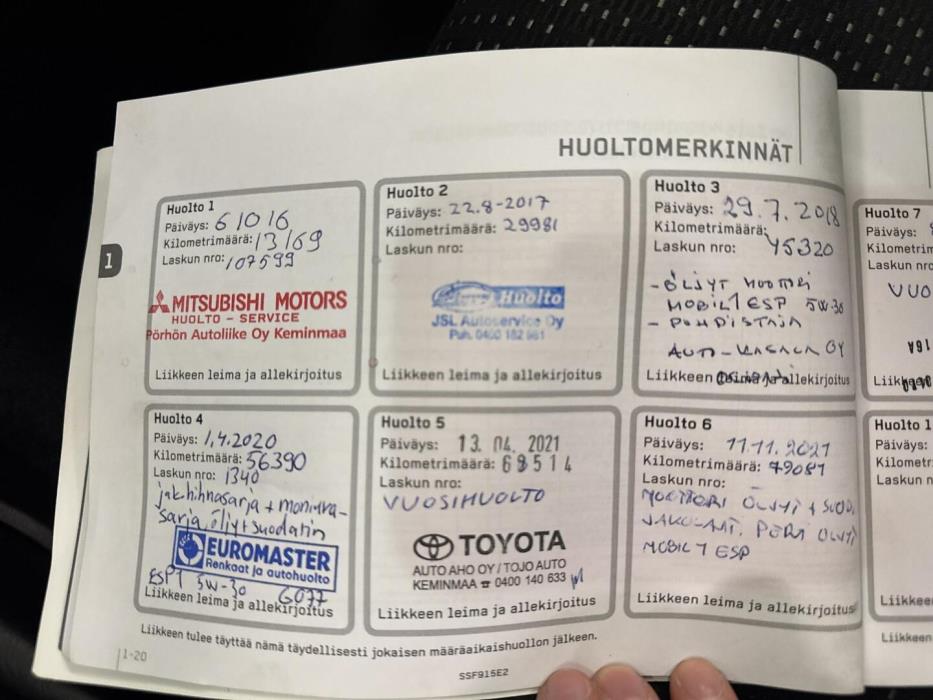 HUOLTOMERKINNÄT
1
Huolto 1
Päiväys: 6 10 16
Kilometrimäärä: 13169
Laskun nro: 107599
MITSUBISHI MOTORS
HUOLTO - SERVICE
Pörhön Autoliike Oy Keminmaa
Liikkeen leima ja allekirjoitus
Huolto 2
Päiväys: 22.8-2017
Kilometrimäärä: 29981
Laskun nro:
Huolto
JSL Autoservice Oy
Puh. 0400 182 661
Liikkeen leima ja allekirjoitus
Huolto 3
Päiväys: 29.7.2018
Kilometrimäärä:
Laskun nro: 45320
- ÖLJYT MOOTTORI
MOBIL 1 ESP 5W-30
- POHDISTAJA
AUTO-KASACA OY
Liikkeen leima ja allekirjoitus
Huolto 7
Päiväys:
Kilometrim
Laskun nro
VUO
16A
Liikkeen
Huolto 4
Päiväys: 1.4.2020
Kilometrimäärä: 56390
Laskun nro: 1340
jakohihnasarja + moniura-
sarja, öljyt+suodatin
EUROMASTER
Renkaat ja autohuolto
ESP1 5W-30 G077
Liikkeen leima ja allekirjoitus
Huolto 5
Päiväys: 13. 04. 2021
Kilometrimäärä: 68514
Laskun nro:
VUOSIHUOLTO
TOYOTA
AUTO AHO OY / TOJO AUTO
KEMINMAA ☎ 0400 140 633
Liikkeen leima ja allekirjoitus
Huolto 6
Päiväys: 11.11.2021
Kilometrimäärä: 79081
Laskun nro:
MOOTTORI ÖLJYT + SUOD.
VAKOLAAT. PERÄ ÖLJYT
MOBIL 1 ESP
Liikkeen leima ja allekirjoitus
Huolto 1
Päiväys:
Kilometr
Laskun n
Liikkee
Liikkeen tulee täyttää nämä täydellisesti jokaisen määräaikaishuollon jälkeen.
Liikkeen
1-20
SSF915E2